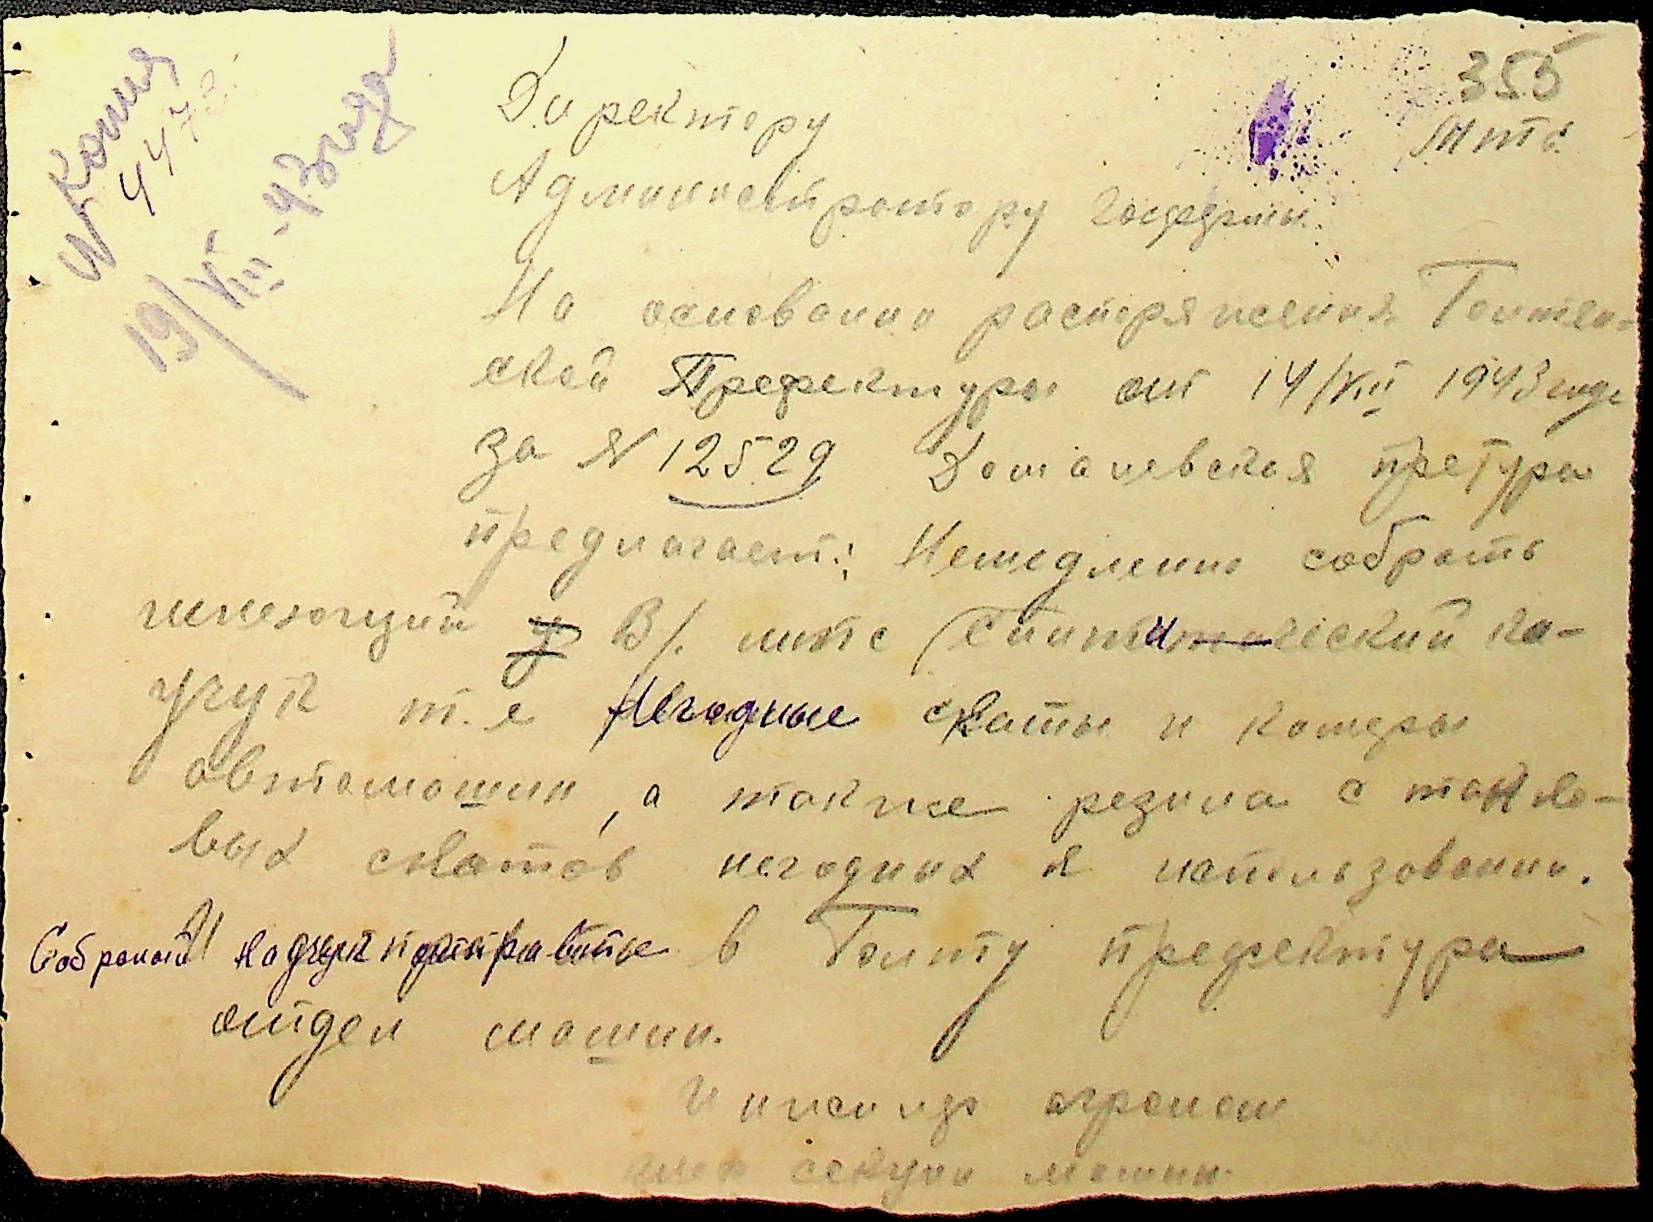 Копия
№ 4473
19/VIII-43 года
355
мтс
Директору
Администратору госфермы
На основании распоряжения Голтян-
ской Префектуры от 14/VIII 1943 года
за № 12529 Доманевская претура
предлагает: Немедленно собрать
имеющий в В/. мтс синтитический ка-
учук т.е негодные скаты и камеры
автомашин, а также резина с танко-
вых скатов негодных к использованию.
Собраный каучук потправте в Голту префектура
отдел машин.
агроном
шеф секции машин.